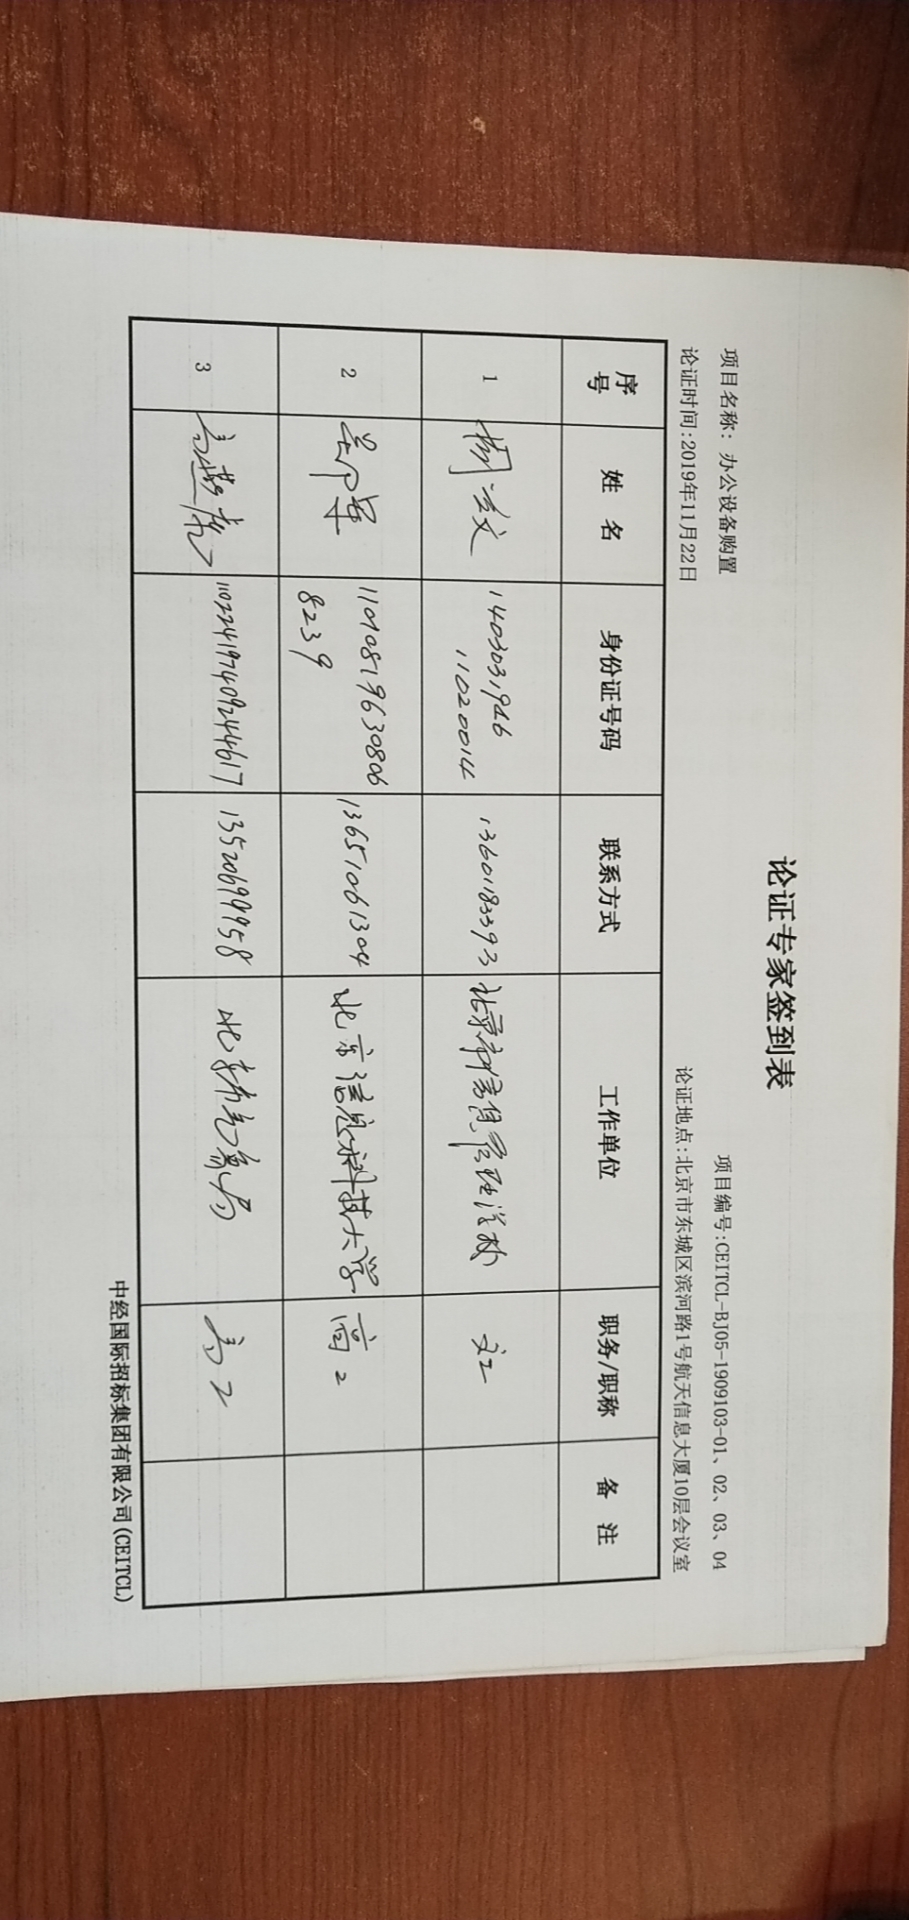 论证专家签到表
项目名称：办公设备购置 项目编号:CEITCL-BJ05-1909103-01、02、03、04
论证时间:2019年11月22日 论证地点:北京市东城区滨河路1号航天信息大厦10层会议室
序号 姓 名 身份证号码 联系方式 工作单位 职务/职称 备 注
1 1403031946 13601183393 北京市信息管理学校
11020014
2 11010819630806 13651061304 北京信息科技大学 高工
8239
3 110224197409244617 13520699958 北京市气象局 高工
中经国际招标集团有限公司(CEITCL)